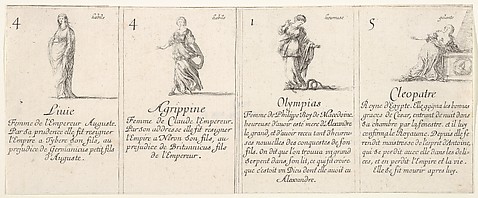 4 habile
Livie
Femme de l'Empereur Auguste.
Par sa prudence elle fit resigner
l'Empire a Tybere son fils, au
prejudice de Germanicus petit fils
d'Auguste.
4 habile
Agrippine
Femme de Claude l'Empereur.
Par son addresse elle fit resigner
l'Empire a Neron son fils, au
prejudice de Britannicus, fils
de l'Empereur.
1 heureuse
Olympias
Femme de Philippe Roy de Macedoine,
heureuse d'avoir esté mere d'Alexandre
le grand, et d'avoir receu tant d'heureu-
ses nouvelles des conquestes de son
fils. On dit que l'on trouva un grand
serpent dans son lit, ce qui fit croire
que c'estoit un Dieu dont elle avoit eu
Alexandre.
5
Cleopatre
Reyne d'Egypte. Elle gaigna les bonnes
graces de Cesar, entrant de nuit dans
sa chambre par la fenestre, et il luy
confirma le Royaume. Depuis elle se
rendit maistresse de l'esprit d'Antoine,
qui se perdit avec elle dans les delic-
es, et en perdit l'Empire et la vie.
Elle se fit mourir apres luy.